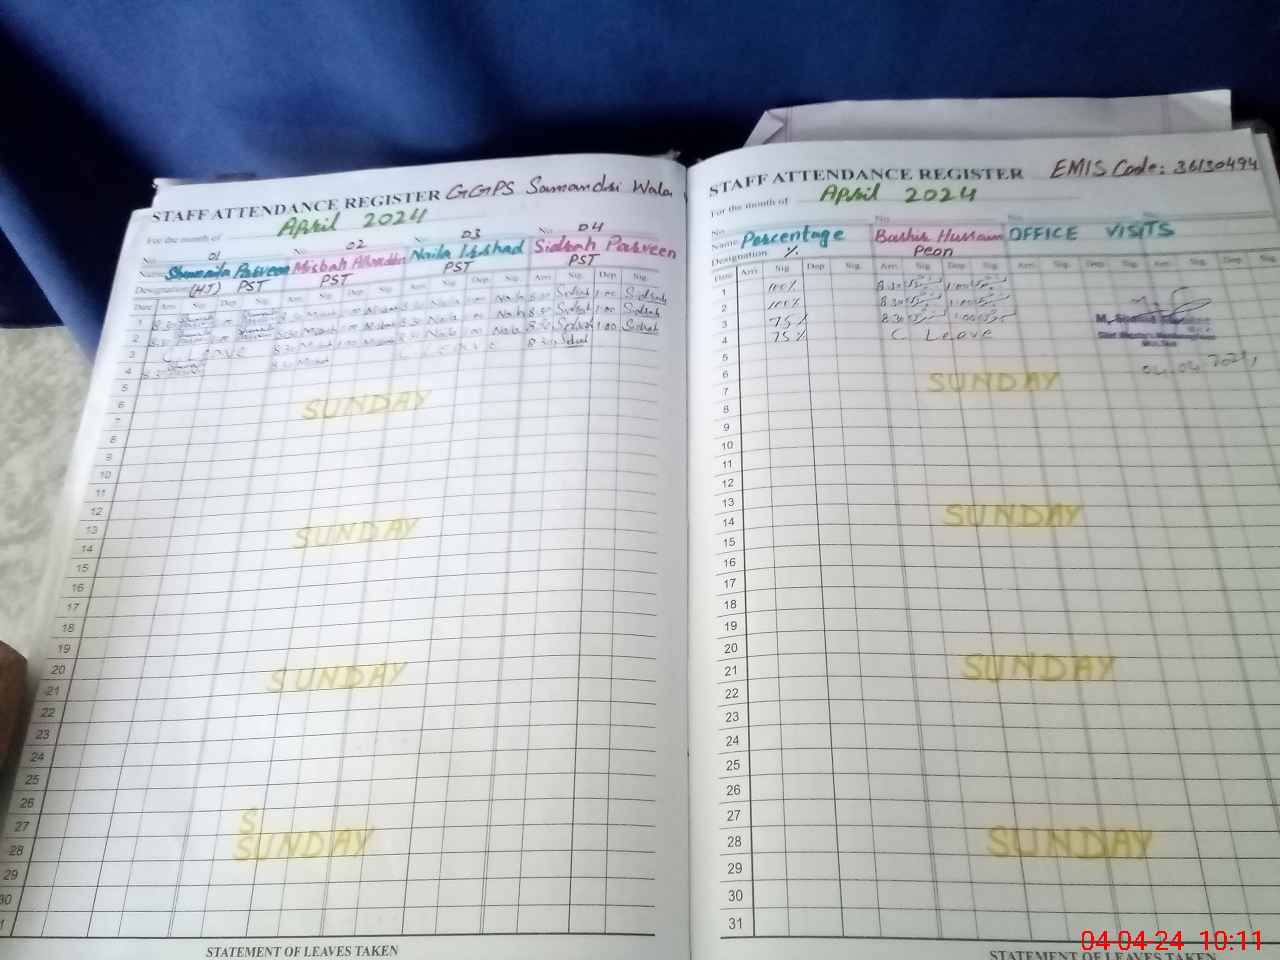 STAFF ATTENDANCE REGISTER GGPS Samandri Wala
For the month of April 2024
No. 01 No. 02 No. 03 No. 04
Name Shumaila Parveen Misbah Naila Irshad Sidrah Parveen
Designation (HT) PST PST PST PST
Date Arr. Sig. Dep. Sig. Arr. Sig. Dep. Sig. Arr. Sig. Dep. Sig. Arr. Sig. Dep. Sig.
1 8.30 1.00 8.30 1.00 8.30 Naila 1.00 Naila 8.30 Sidrah 1.00 Sidrah
2 8.30 1.00 8.30 1.00 8.30 Naila 1.00 Naila 8.30 Sidrah 1.00 Sidrah
3 C Leave 8.30 1.00 8.30 Naila 1.00 Naila 8.30 Sidrah 1.00 Sidrah
4 8.30 8.30 C Leave 8.30 Sidrah
5
6
7 SUNDAY
8
9
10
11
12
13
14 SUNDAY
15
16
17
18
19
20
21 SUNDAY
22
23
24
25
26
27 S
28 SUNDAY
29
30
STATEMENT OF LEAVES TAKEN
STAFF ATTENDANCE REGISTER EMIS Code: 36130494
For the month of April 2024
No. No. No. No.
Name Percentage Bashir Hussain OFFICE VISITS
Designation % Peon
Date Arr. Sig. Dep. Sig. Arr. Sig. Dep. Sig. Arr. Sig. Dep. Sig. Arr. Sig. Dep. Sig.
1 100% 8.30 1.00
2 100% 8.30 1.00
3 75% 8.30 1.00
4 75% C Leave
5
6 04.04.2024,
7 SUNDAY
8
9
10
11
12
13
14 SUNDAY
15
16
17
18
19
20
21 SUNDAY
22
23
24
25
26
27
28 SUNDAY
29
30
31
STATEMENT OF LEAVES TAKEN
04-04-24 10:11